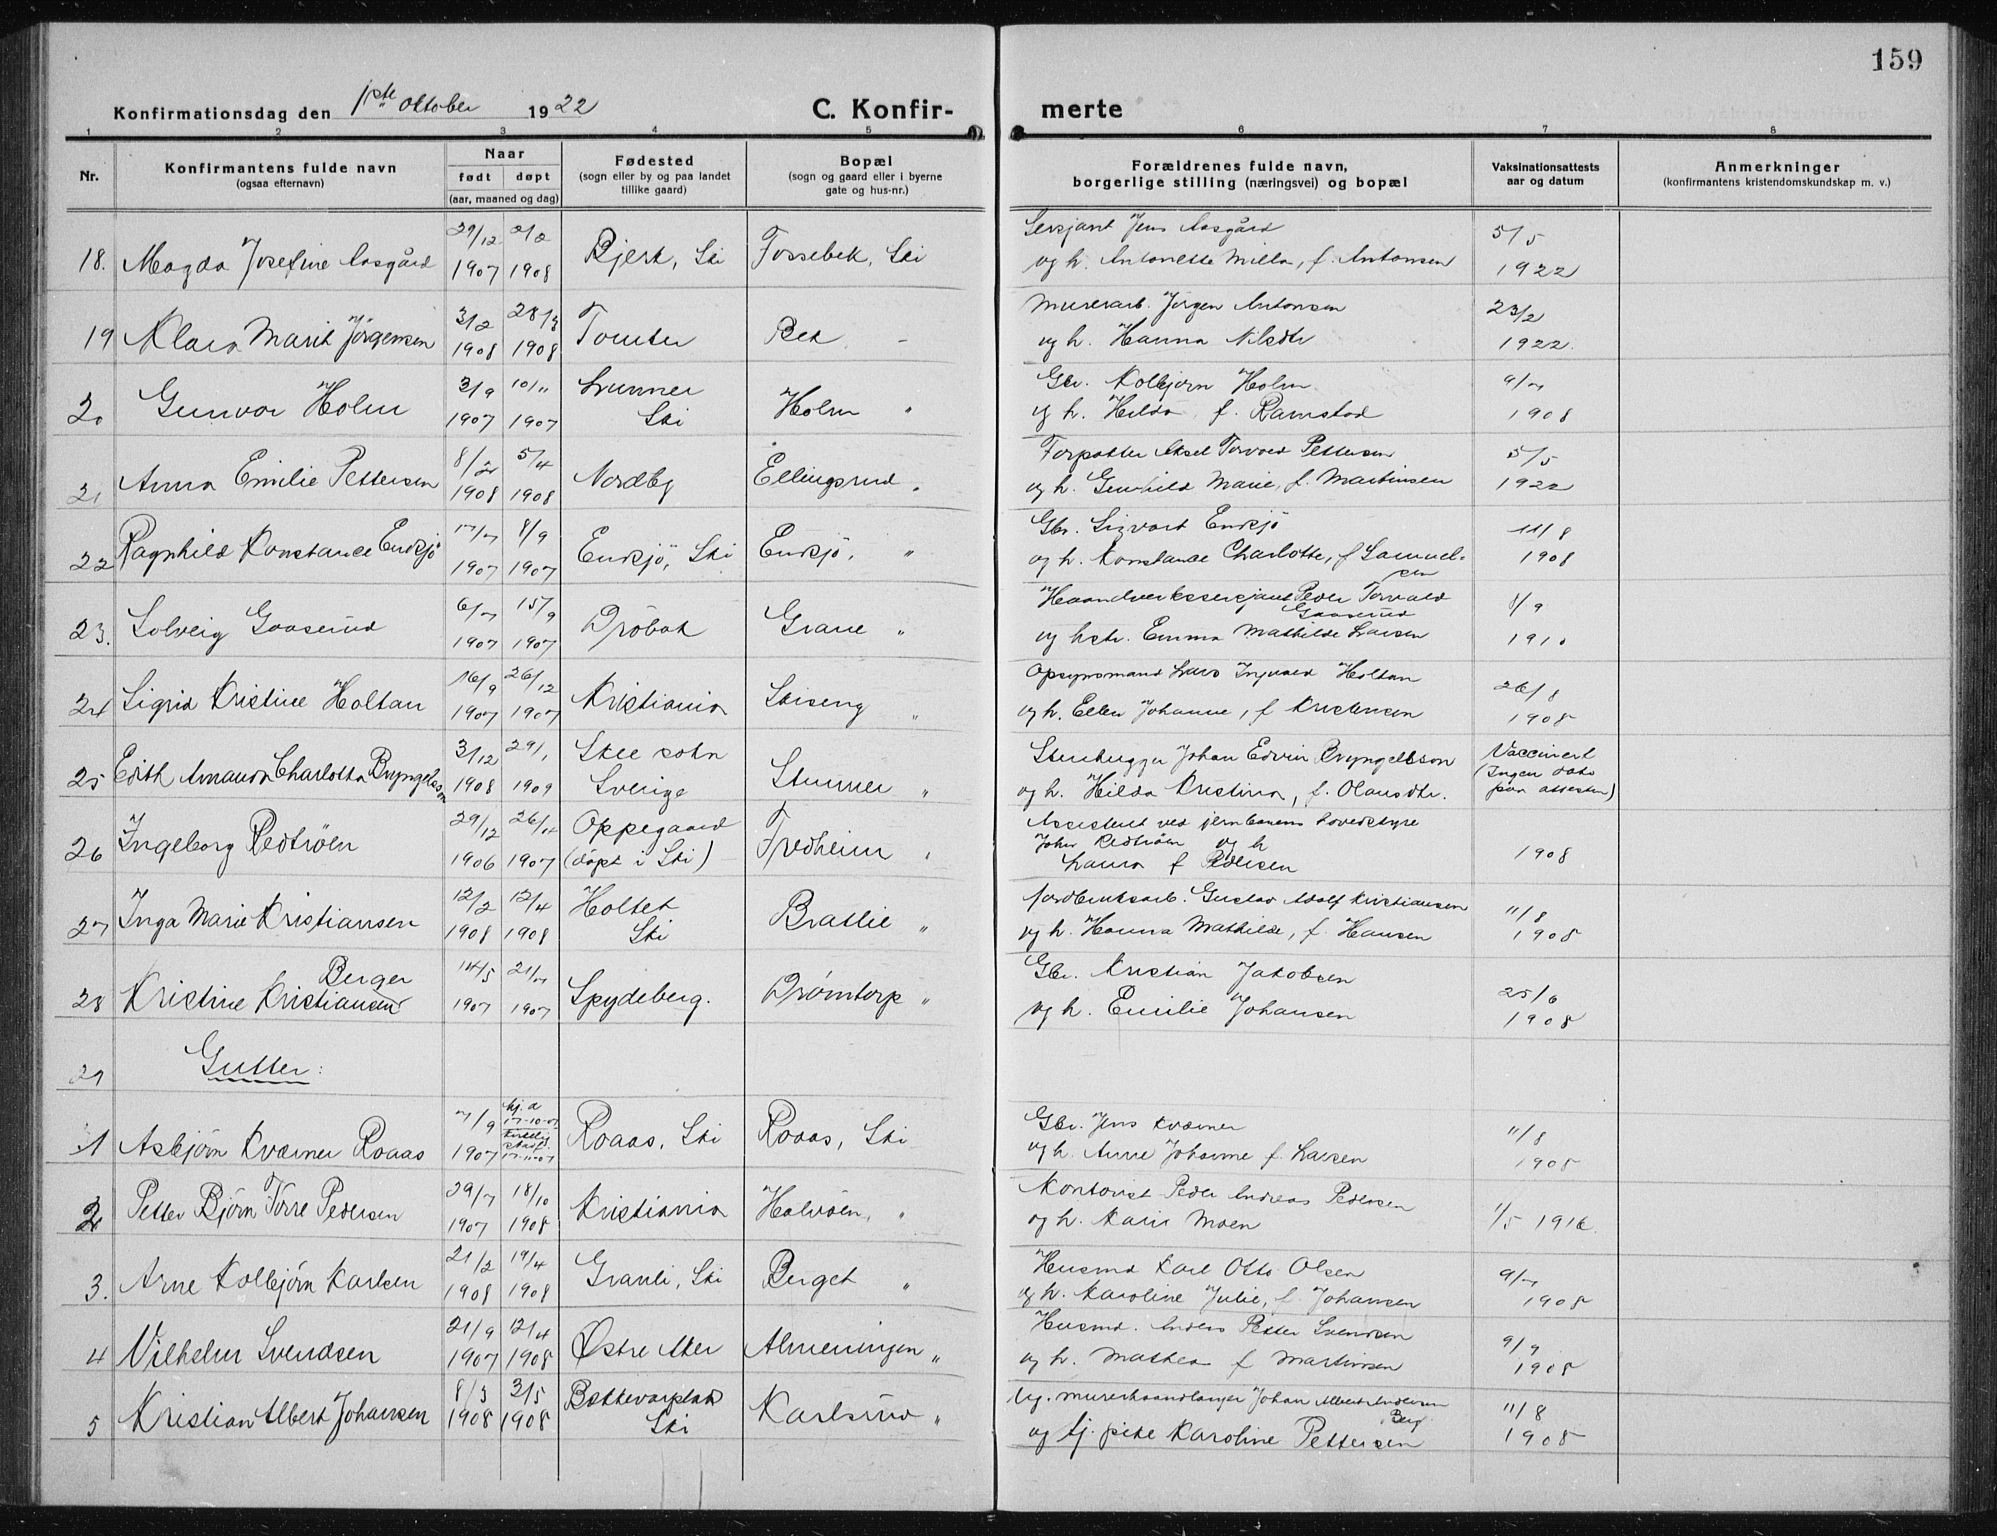 159
Konfirmationsdag den 1ste Oktober 1922 C. Konfir- merte
1 2 3 4 5 6 7 8
Nr. Konfirmantens fulde navn (ogsaa efternavn) Naar født døpt (aar, maaned og dag) Fødested (sogn eller by og paa landet tillike gaard) Bopæl (sogn og gaard eller i byerne gate og hus-nr.) Forældrenes fulde navn, borgerlige stilling (næringsvei) og bopæl Vaksinationsattests aar og datum Anmerkninger (konfirmantens kristendomskundskap m. v.)
29/12 2/2 Sersjant Jens Aasgård 5/5
18. Magda Josefine Aasgård 1907 1908 Bjerk, Ski Fossebek, Ski og h. Antonette Milla, f. Antonsen 1922
3/2 28/3 Murerarb. Jörgen Antonsen 23/2
19 Klara Marit Jörgensen 1908 1908 Tomter Bek - og h. Hanna Nilsdtr 1922.
3/9 10/11 Lunner Gbr. Kolbjørn Holm 9/7
20 Gunvor Holm 1907 1907 Ski Holm " og h. Hilda f. Ramstad 1908
8/2 5/4 Aksel Torvald Pettersen 5/5
21 Anna Emilie Pettersen 1908 1908 Nordby Ellingsrud " og h. Gunhild Marie, f. Martinsen 1922
17/7 8/9 Gbr. Sigvart Enksjö 11/8
22 Ragnhild Konstance Enksjö 1907 1907 Enksjö, Ski Enksjö, " og h. Konstance Charlotte, f Samuel-
sen 1908
6/7 15/9 Haandverkssersjant Peder Torvald Gaaserud 8/9
23. Solveig Gaaserud 1907 1907 Dröbak Grane " og hstr. Emma Mathilde Larsen 1910
16/9 26/12 Opsynsmand Lars Ingvald Holtan 26/8
24 Sigrid Kristine Holtan 1907 1907 Kristiania Skiseng " og h. Ellen Johanne, f Kristensen 1908
3/12 29/1 Skee sokn Stenhugger Johan Edvin Bryngelsson Vaccinert
25 Edith Amanda Charlotta Bryngelsson 1908 1909 Sverige Stunner " og h. Hilda Kristina, f. Olausdtr. (Ingen dato paa attesten)
29/12 26/ Oppegaard Assistent ved jernbanens hovedstyre
26 Ingeborg Redtröen 1906 1907 (døpt i Ski) Fredheim " Johs Redtröen og h Laura f Pedersen 1908
12/2 12/4 Holtet Jordbruksarb. Gustav Adolf Kristiansen 11/8
27 Inga Marie Kristiansen 1908 1908 Ski Bratlie " og h. Hanna Mathilde, f. Hansen 1908
Berger 14/5 21/7 Gbr. Kristian Jakobsen 25/6
28 Kristine Kristiansen 1907 1907 Spydeberg. Drömtorp " og h. Emilie Johansen 1908
29 Gutter:
7/9 hj. d 17-10-07 Gbr. Jens Kværner 11/8
1 Asbjörn Kværner Roaas 1907 17-11-07 Roaas, Ski Roaas, Ski og h. Anne Johanne f. Larsen 1908
29/7 18/10 Kontorist Peder Andreas Pedersen
2 Petter Björn Törre Pedersen 1907 1908 Kristiania Halvöen, " og h. Karin Moen 1/5 1916.
21/2 19/4 Husmd Karl Otto Olsen 9/7
3. Arne Kolbjörn Karlsen 1908 1908 Granli, Ski Berget " og h. Karoline Julie, f. Johansen 1908
21/9 12/4 Husmd. Anders Petter Svendsen 9/9
4 Vilhelm Svendsen 1907 1908 Østre Aker Almeningen " og h. Mathea f Martinsen 1908
8/3 3/5 Ug. murerhaandlanger Johan Albert Andersen Berg 11/8
5 Kristian Albert Johansen 1908 1908 Ski Karlsrud " og tj. pike Karoline Pettersen 1908